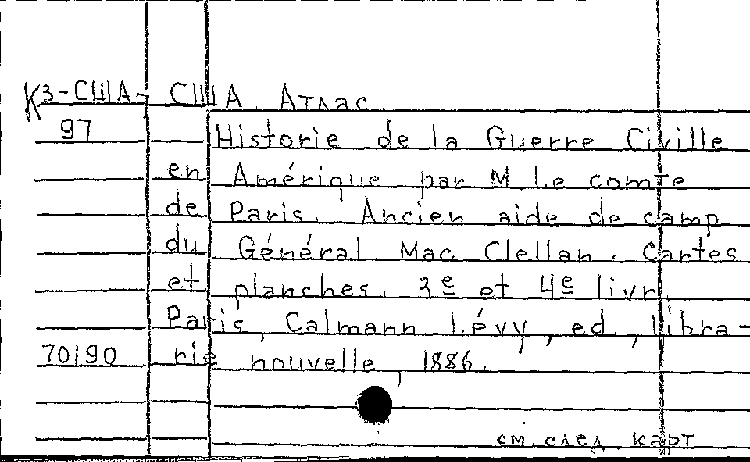 К3-США- США. Атлас
97 Historie de la Guerre Civille
en Amérique par M. Le comte
de Paris. Ancien aide de camp
du Général Mac Clellan. Cartes
et planches. 3e et 4e livr.
Paris, Calmann Lévy, ed, libra-
70190 rie nouvelle, 1886.
см. след. карт